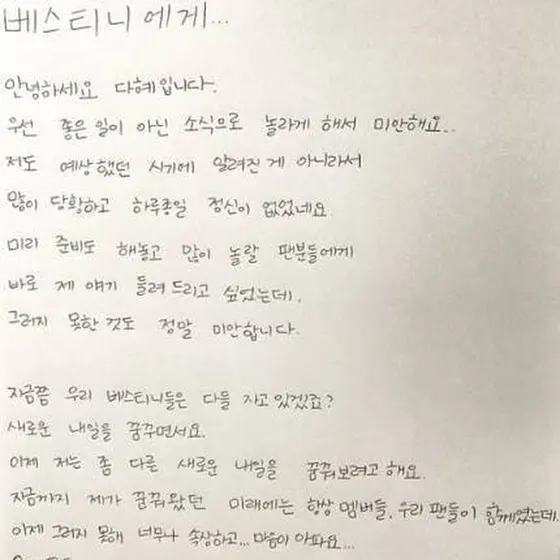 베스티니에게...
안녕하세요 다혜입니다.
우선 좋은 일이 아닌 소식으로 놀라게 해서 미안해요..
저도 예상했던 시기에 알려진 게 아니라서
많이 당황하고 하루종일 정신이 없었네요.
미리 준비도 해놓고 많이 놀랄 팬분들에게
바로 제 얘기 들려 드리고 싶었는데,
그러지 못한 것도 정말 미안합니다.
지금쯤 우리 베스티니들은 다들 자고있겠죠?
새로운 내일을 꿈꾸면서요.
이제 저는 좀 다른 새로운 내일을 꿈꿔보려고 해요.
지금까지 제가 꿈꿔왔던 미래에는 항상 멤버들, 우리 팬들이 함께였는데.
이제 그러지 못해 너무나 속상하고... 마음이 아파요...